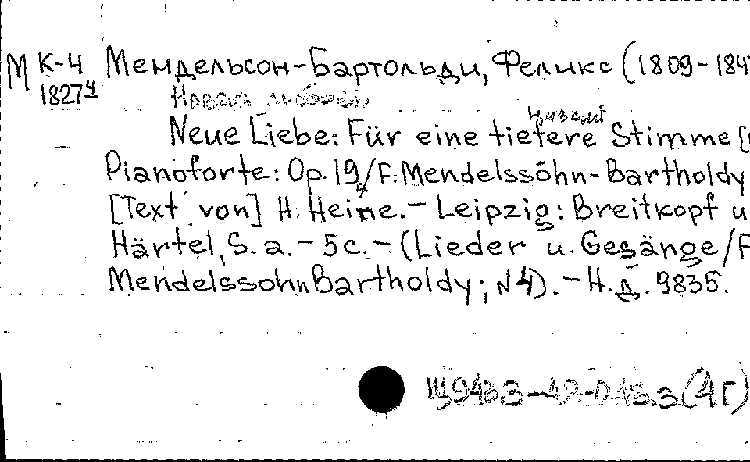 М К-4 Мендельсон-Бартольди, Феликс (1809-184
18274
Новая любовь
низкий
Neue Liebe: Für eine tiefere Stimme [
Pianoforte: Op. 19/4/F. Mendelssohn-Bartholdy
[Text von] H. Heine. - Leipzig: Breitkopf u
Härtel, S. a. - 5 c. - (Lieder u. Gesänge/F
Mendelssohn Bartholdy; N4). - Н. д. 9835.
Щ943.3-49-043.3(4Г)